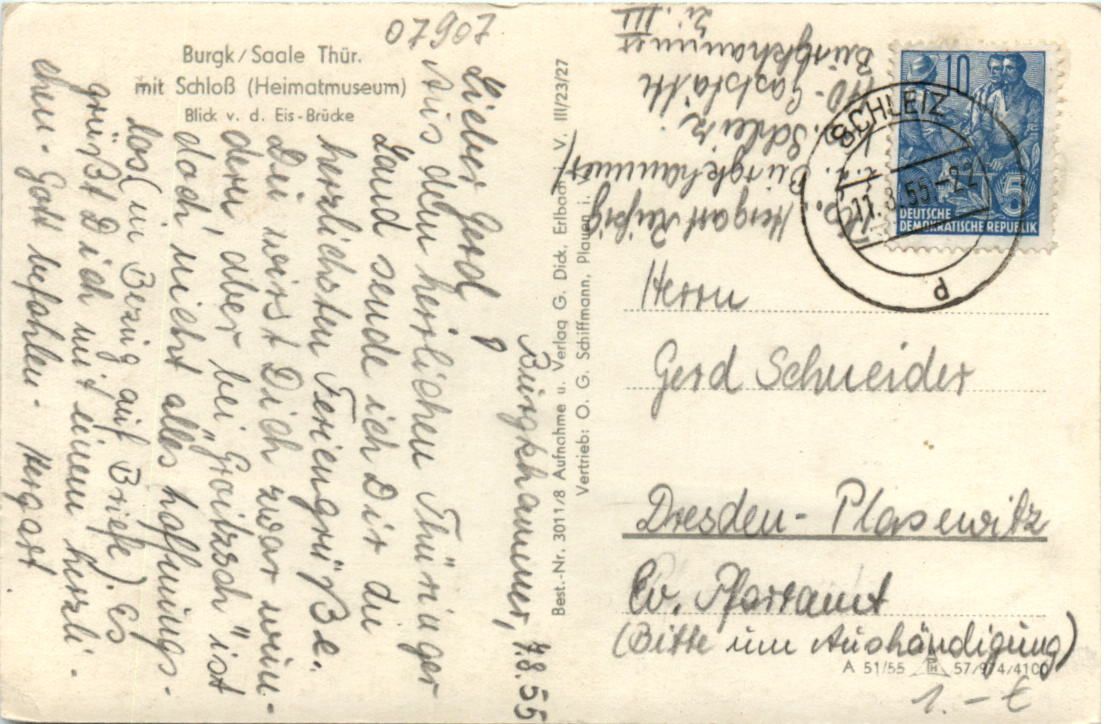 07907
Burgk/Saale Thür.
mit Schloß (Heimatmuseum)
Blick v. d. Eis-Brücke
Burgkhammer, 7.8.55
Lieber Gerd!
Aus dem herrlichen Thüringer
Land sende ich Dir die
herzlichsten Feriengrüße.
Du wirst Dich zwar wun-
dern aber bei „Goitzsch" ist
doch nicht alles hoffnungs-
los (in Bezug auf Briefe). Es
grüßt Dich mit einem herzli-
chen - Gott befohlen - Hergart
Best.-Nr. 3011/8 Aufnahme u. Verlag G. Dick, Erlbach i. V. III/23/27
Vertrieb: O. G. Schiffmann, Plauen i. V.
Hergart
Burgkhammer
Schleiz
HO-Gaststätte
Burgkhammer
Zi. III
10
5
DEUTSCHE
DEMOKRATISCHE REPUBLIK
SCHLEIZ
11.8.55.-22
d
Herrn
Gerd Schneider
Dresden-Plasewitz
Ev. Pfarramt
(Bitte um Aushändigung)
A 51/55 57/974/4100
1.- €